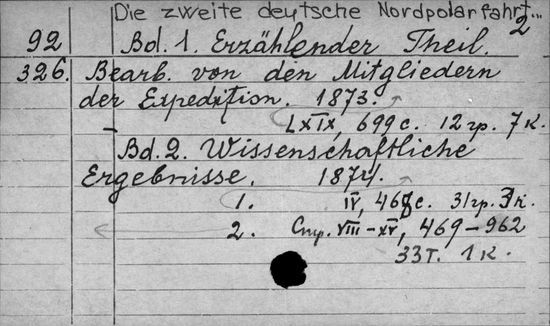 Die zweite deutsche Nordpolarfahrt...
2
92 Bd. 1. Erzählender Theil.
326. Bearb. von den Mitgliedern
der Expedition. 1873.
LXIX, 699 c. 12 гр. 7 К.
Bd. 2. Wissenschaftliche
Ergebnisse. 1874.
1. IV, 468 c. 31 гр. 3 к.
2. Стр. VIII-XV, 469-962
33 т. 1 К.